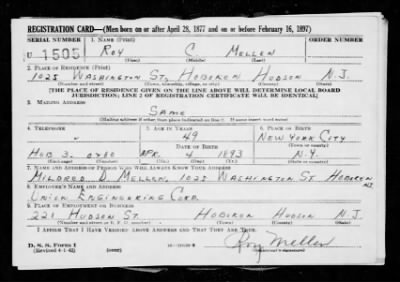 REGISTRATION CARD—(Men born on or after April 28, 1877 and on or before February 16, 1897)
SERIAL NUMBER 1. NAME (Print) ORDER NUMBER
U 1505 ROY C MELLEN
(First) (Middle) (Last)
2. PLACE OF RESIDENCE (Print)
1025 WASHINGTON ST. HOBOKEN HUDSON N.J.
(Number and street) (Town, township, village, or city) (County) (State)
[THE PLACE OF RESIDENCE GIVEN ON THE LINE ABOVE WILL DETERMINE LOCAL BOARD
JURISDICTION; LINE 2 OF REGISTRATION CERTIFICATE WILL BE IDENTICAL]
3. MAILING ADDRESS
SAME
(Mailing address if other than place indicated on line 2. If same insert word same)
4. TELEPHONE 5. AGE IN YEARS 6. PLACE OF BIRTH
49 NEW YORK CITY
DATE OF BIRTH (Town or county)
HOB 3. 0780 APR. 4 1893 N.Y.
(Exchange) (Number) (Mo.) (Day) (Yr.) (State or country)
7. NAME AND ADDRESS OF PERSON WHO WILL ALWAYS KNOW YOUR ADDRESS
MILDRED D. MELLEN, 1025 WASHINGTON ST HOBOKEN NJ
8. EMPLOYER'S NAME AND ADDRESS
UNION ENGINEERING CORP.
9. PLACE OF EMPLOYMENT OR BUSINESS
221 HUDSON ST. HOBOKEN HUDSON N.J.
(Number and street or R. F. D. number) (Town) (County) (State)
I AFFIRM THAT I HAVE VERIFIED ABOVE ANSWERS AND THAT THEY ARE TRUE.
D. S. S. Form 1
(Revised 4-1-42) (over) Roy Mellen
(Registrant's signature)